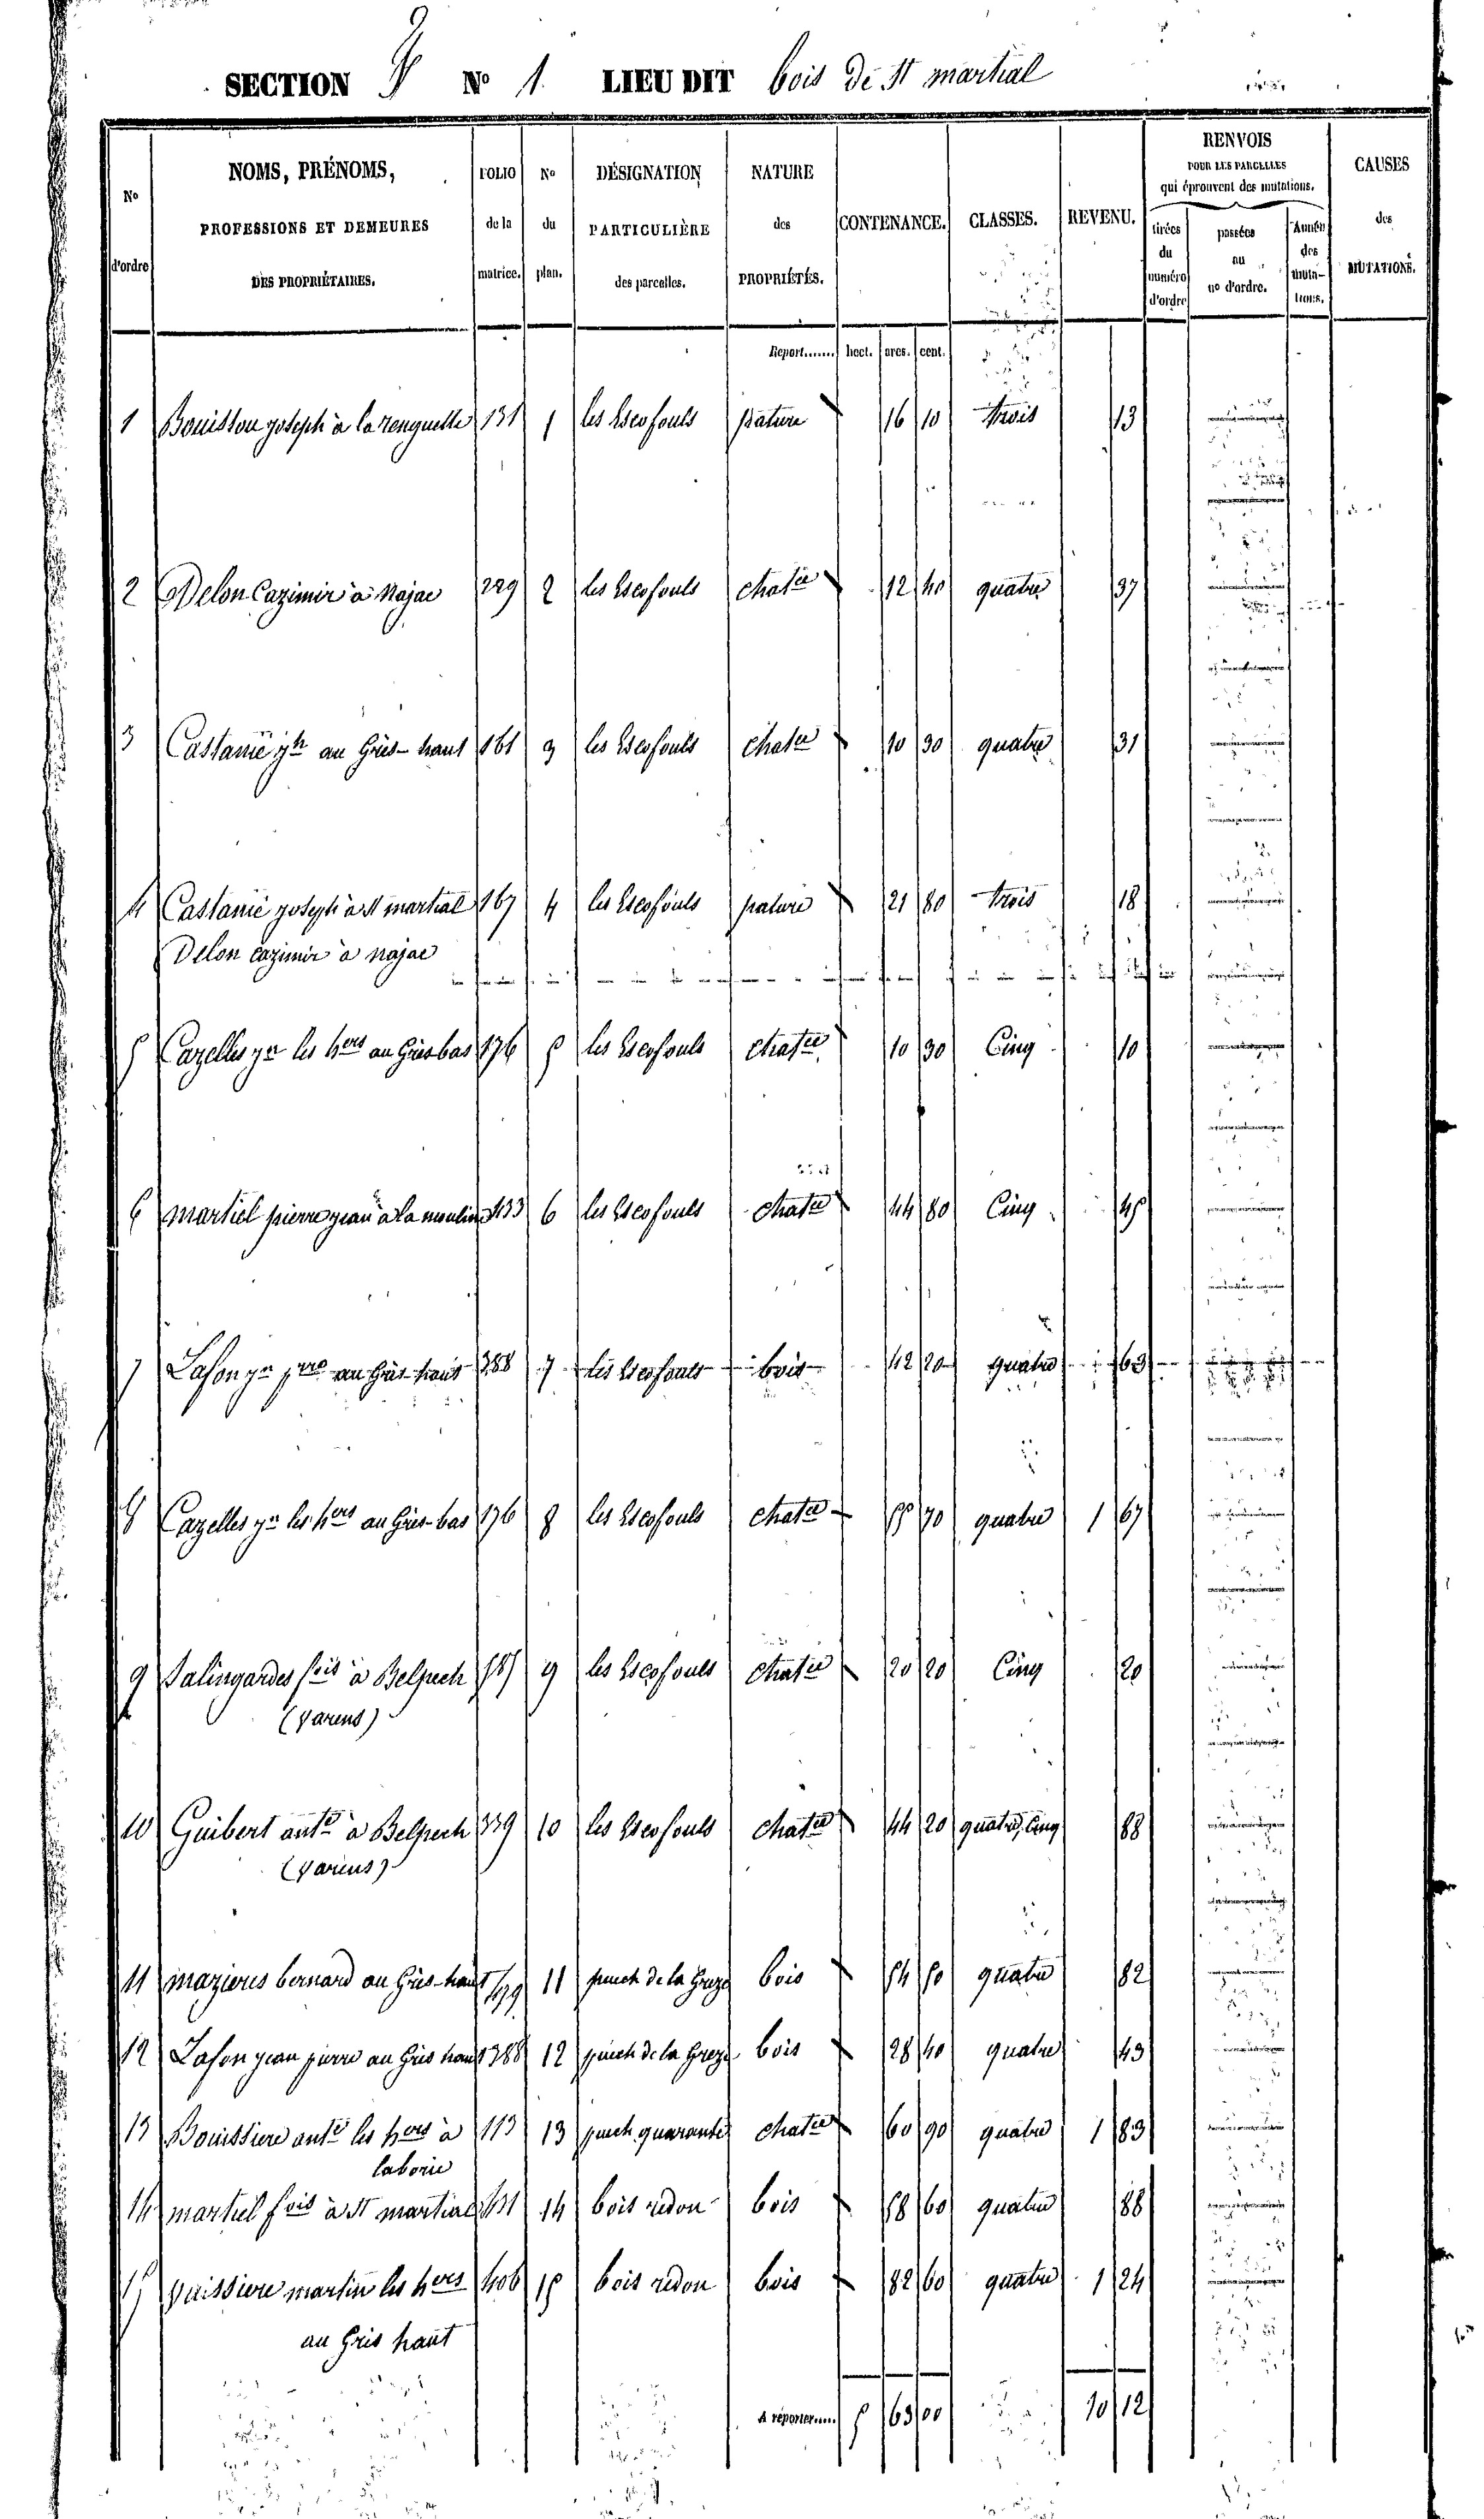 SECTION N° 1. LIEU DIT bois de St martial
No d'ordre
NOMS, PRÉNOMS, PROFESSIONS ET DEMEURES DES PROPRIÉTAIRES.
FOLIO de la matrice.
No du plan.
DÉSIGNATION PARTICULIÈRE des parcelles.
NATURE des PROPRIÉTÉS.
CONTENANCE.
CLASSES.
REVENU.
RENVOIS POUR LES PARCELLES qui éprouvent des mutations.
tirées du numéro d'ordre
passées au no d'ordre.
Année des mutations.
CAUSES des MUTATIONS.
Report....... hect. ares. cent.
1 Bouisson joseph à la renquette 131 1 les Escofouls pature 16 10 trois 13
2 Delon Cazimir à Najac 229 2 les Escofouls chatie 12 40 quatre 37
3 Castanié jh au Griès-haut 161 3 les Escofouls chatie 10 30 quatre 31
4 Castanié joseph à St martial 167 4 les Escofouls pature 21 80 trois 18
Delon cazimir à najac
5 Cazelles jn les hers au Griès bas 176 5 les Escofouls chatie 10 30 Cinq 10
6 martiel pierre jean à la mouline 433 6 les Escofouls chatie 44 80 Cinq 45
7 Lafon jn pre au Griès haut 388 7 les Escofouls bois 42 20 quatre 63
8 Cazelles jn les hers au Griès-bas 176 8 les Escofouls chatie 55 70 quatre 1 67
9 Salingardes fois à Belpech 585 9 les Escofouls chatie 20 20 Cinq 20
(Varens)
10 Guibert ante à Belpech 339 10 les Escofouls chatie 44 20 quatre, Cinq 88
(Varens)
11 mazieres bernard au Griès-haut 11 puech de la Greze bois 54 50 quatre 82
12 Lafon jean pierre au Griès haut 388 12 puech de la Greze bois 28 40 quatre 43
13 Bouissiere ante les hers à 113 13 puech quarante chatie 60 90 quatre 1 83
laborie
14 martiel fois à St martial 431 14 bois redon bois 58 60 quatre 88
15 Vaissiere martin les hers 406 15 bois redon bois 82 60 quatre 1 24
au Griès haut
A reporter..... 5 63 00 10 12